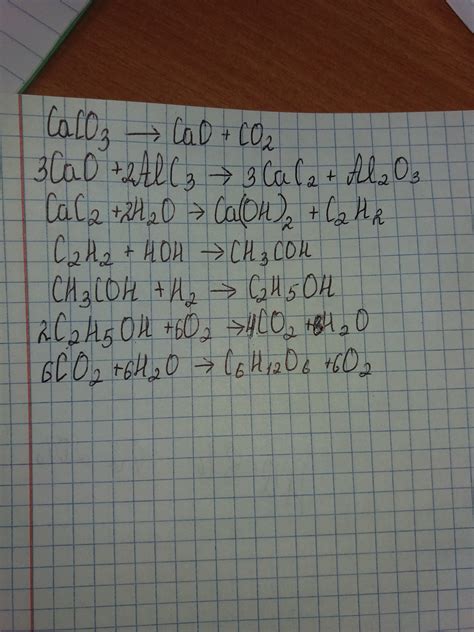 CaCO₃ → CaO + CO₂
3CaO + 2AlC₃ → 3CaC₂ + Al₂O₃
CaC₂ + 2H₂O → Ca(OH)₂ + C₂H₂
C₂H₂ + HOH → CH₃COH
CH₃COH + H₂ → C₂H₅OH
2C₂H₅OH + 6O₂ → 4CO₂ + 6H₂O
6CO₂ + 6H₂O → C₆H₁₂O₆ + 6O₂